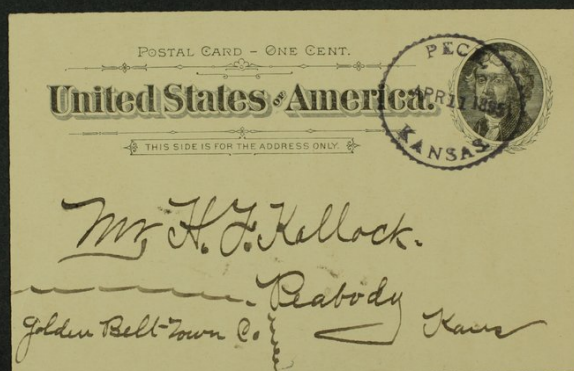 POSTAL CARD - ONE CENT.
United States OF America.
THIS SIDE IS FOR THE ADDRESS ONLY.
PECK
APR 11 1895
KANSAS
Mr H. F. Kollock.
Peabody
Kans
Golden Belt Town Co.